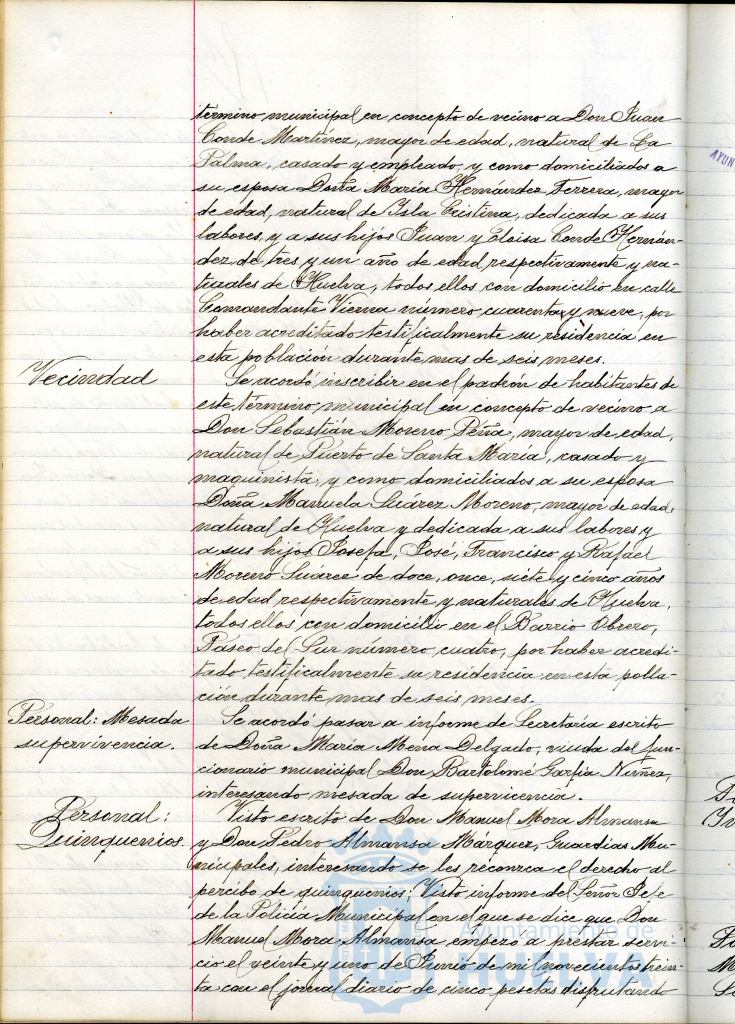 término municipal en concepto de vecino a Don Juan
Conde Martínez, mayor de edad, natural de La
Palma, casado y empleado, y como domiciliados a
su esposa Doña María Hernández Ferrera, mayor
de edad, natural de Isla Cristina, dedicada a sus
labores, y a sus hijos Juan y Eloisa Conde Hernán-
dez de tres y un año de edad respectivamente y na-
turales de Huelva, todos ellos con domicilio en calle
Comandante Vierna número cuarenta y nueve, por
haber acreditado testificalmente su residencia en
esta población durante mas de seis meses.
Vecindad
Se acordó inscribir en el padrón de habitantes de
este término municipal en concepto de vecino a
Don Sebastián Moreno Peña, mayor de edad,
natural de Puerto de Santa María, casado y
maquinista, y como domiciliados a su esposa
Doña Manuela Suárez Moreno, mayor de edad,
natural de Huelva y dedicada a sus labores y
a sus hijos Josefa, José, Francisco y Rafael
Moreno Suárez de doce, once, siete y cinco años
de edad respectivamente y naturales de Huelva,
todos ellos con domicilio en el Barrio Obrero,
Paseo del Sur número cuatro, por haber acredi-
tado testificalmente su residencia en esta pobla-
ción durante mas de seis meses.
Personal: Mesada
supervivencia.
Se acordó pasar a informe de Secretaría escrito
de Doña María Mena Delgado, viuda del fun-
cionario municipal Don Bartolomé Garfia Núñez,
interesando mesada de supervicencia.
Personal:
Quinquenios.
Visto escrito de Don Manuel Mora Almansa
y Don Pedro Almansa Márquez, Guardias Mu-
nicipales, interesando se les reconzca el derecho al
percibo de quinquenios: Visto informe del Señor Jefe
de la Policía Municipal en el que se dice que Don
Manuel Mora Almansa empezó a prestar servi-
cio el veinte y uno de Junio de mil novecientos trein-
ta con el jornal diario de cinco pesetas disfrutando
Ayuntamiento de
HUELVA
AYUN